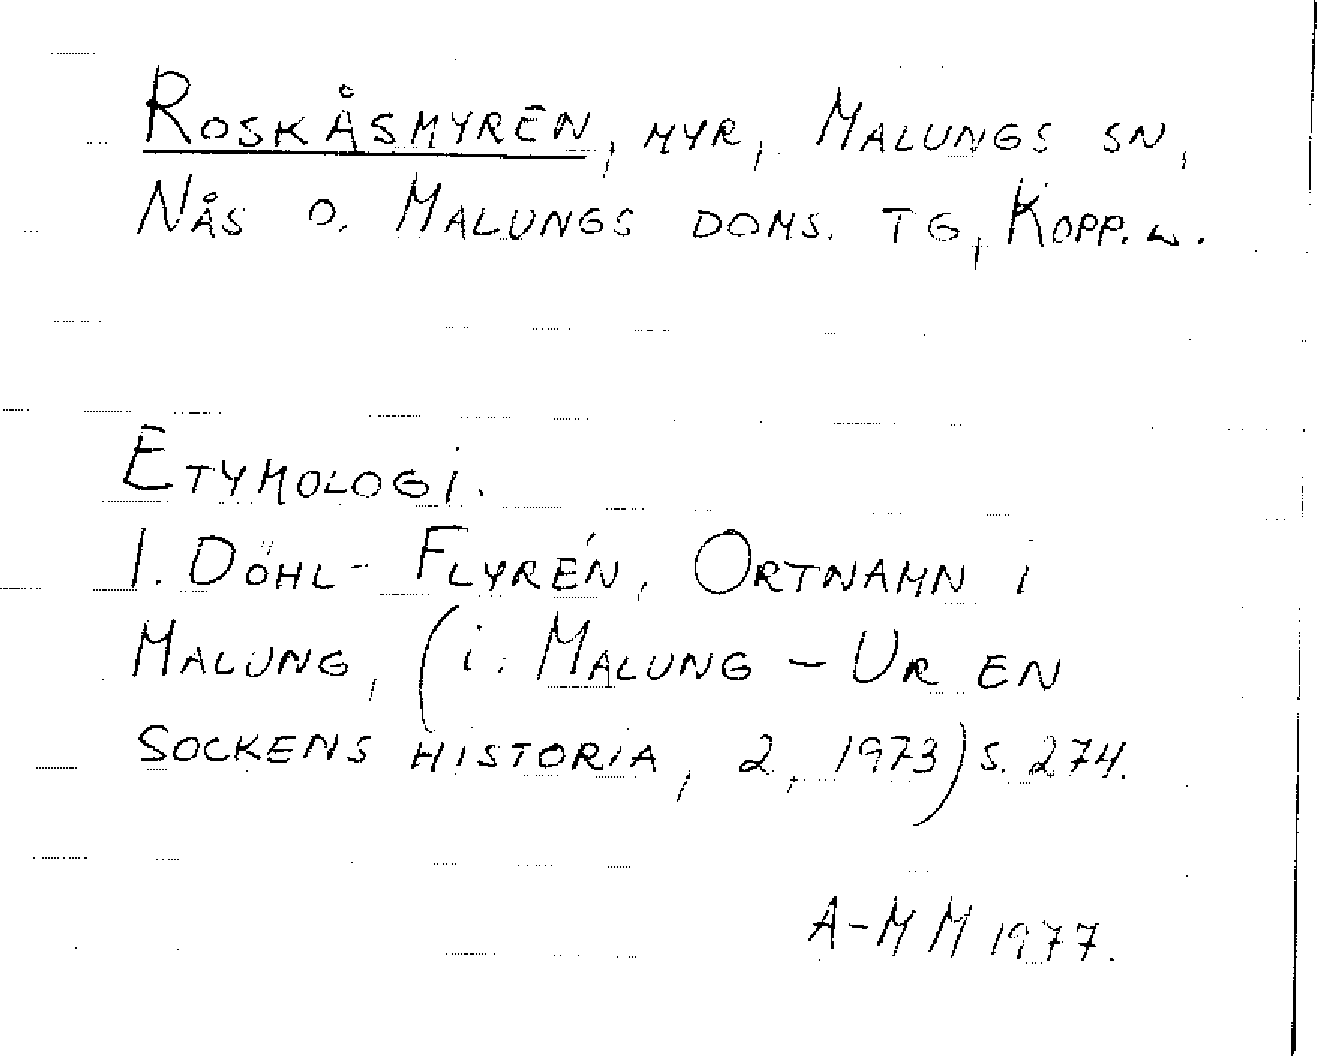 ROSKÅSMYREN, MYR, MALUNGS SN,
NÅS O. MALUNGS DOMS. TG, KOPP. L.
ETYMOLOGI.
I. DÖHL-FLYRÉN, ORTNAMN I
MALUNG, (i: MALUNG – UR EN
SOCKENS HISTORIA, 2, 1973) S. 274.
A-MM 1977.